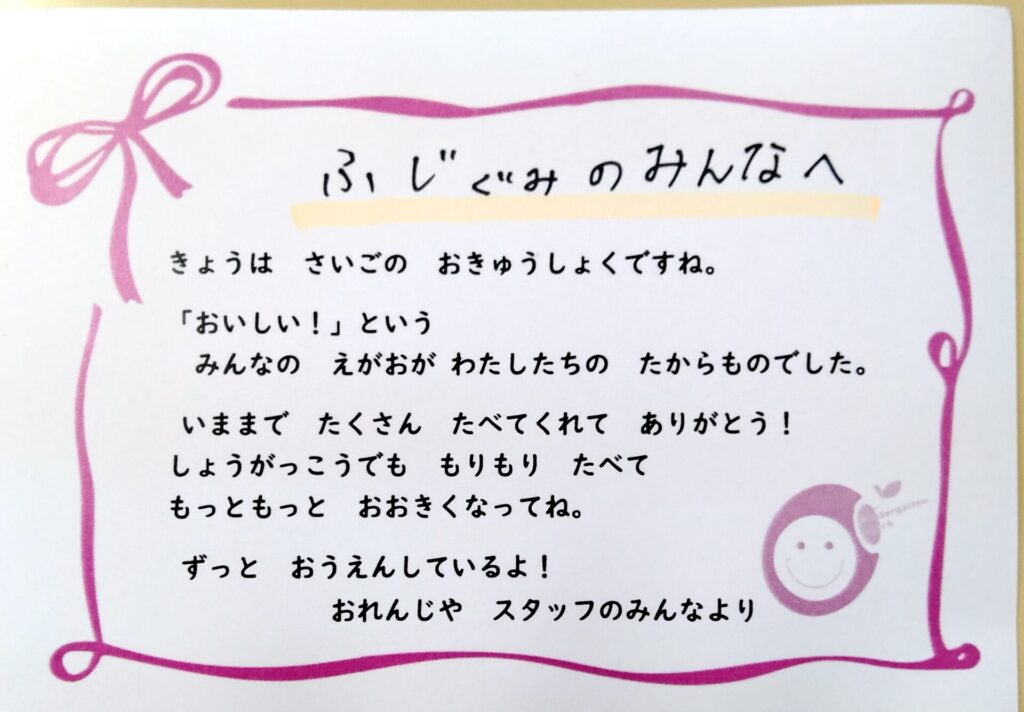 ふじぐみのみんなへ
きょうは　さいごの　おきゅうしょくですね。
「おいしい！」という
みんなの　えがおが わたしたちの　たからものでした。
いままで　たくさん　たべてくれて　ありがとう！
しょうがっこうでも　もりもり　たべて
もっともっと　おおきくなってね。
ずっと　おうえんしているよ！
おれんじや　スタッフのみんなより